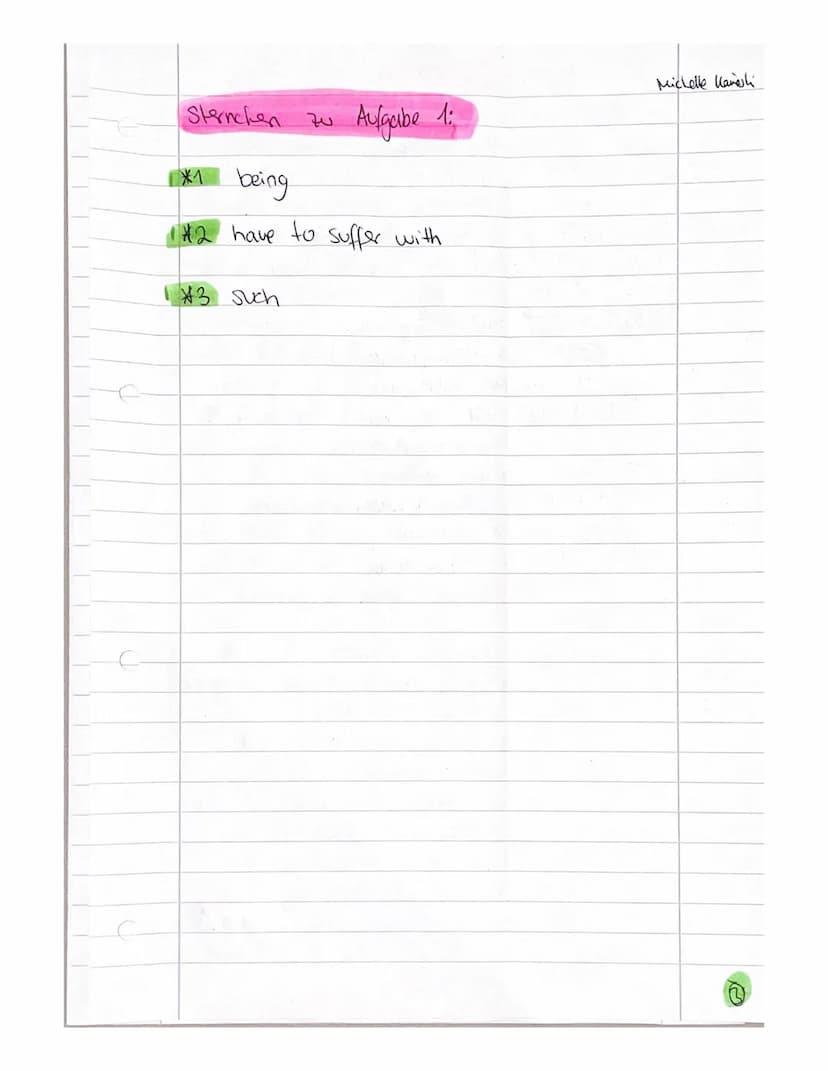 Michelle
Sternchen zu Aufgabe 1:
*1 being
*2 have to suffer with
*3 such